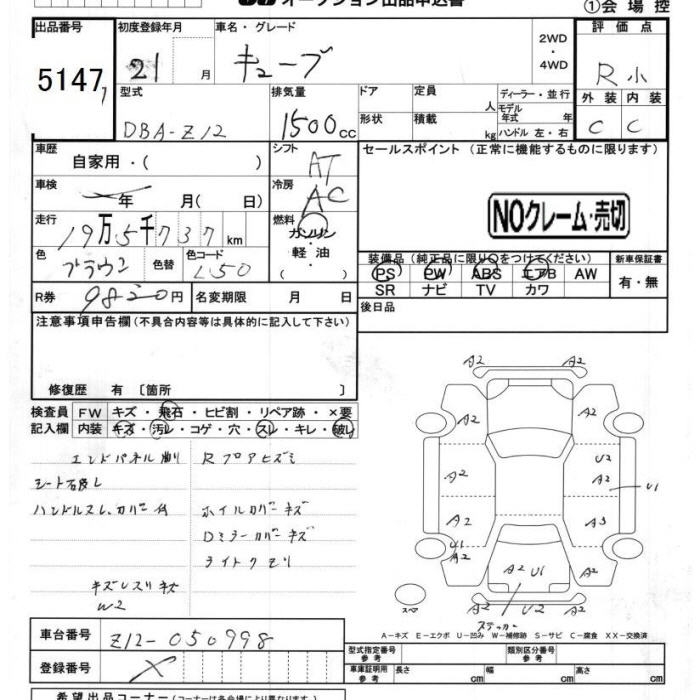 オークション出品申込書
①会場控
出品番号
5147
初度登録年月
21 月
車名・グレード
キューブ
2WD
・
4WD
評価点
R 小
外装 内装
C C
型式
DBA-Z12
排気量
1500 cc
ドア
定員 人
形状
積載 kg
ディーラー・並行
モデル年式 年
ハンドル 左・右
車歴
自家用・( )
シフト
AT
車検
年 月( 日)
冷房
AC
走行
19万5千737 km
燃料
ガソリン
軽油
( )
色
ブラウン
色替
色コード
L50
R券 9820円
名変期限 月 日
セールスポイント (正常に機能するものに限ります)
NOクレーム・売切
装備品(純正品に限り○をつけてください)
PS PW ABS エアB AW
SR ナビ TV カワ
新車保証書
有・無
後日品
注意事項申告欄(不具合内容等は具体的に記入して下さい)
修復歴 有〔箇所 〕
検査員記入欄
FW キズ・飛石・ヒビ割・リペア跡・×要
内装 キズ・汚レ・コゲ・穴・スレ・キレ・破レ
エンドパネル
シート破レ
ハンドルスレ
ホイルカバーキズ
Dミラーカバーキズ
ライトクモリ
W2
A2 A2
A2 A2
A2 U2
A2 U1
A2 A3
U1
A2 A2 U1 A2
A2 A2
スペア
ステッカー
A-キズ E-エクボ U-凹み W-補修跡 S-サビ C-腐食 XX-交換済
車台番号 Z12-050998
登録番号
型式指定番号 参考
類別区分番号 参考
車庫証明用 参考
長さ cm 幅 cm 高さ cm
希望出品コーナー(コーナーは各会場により異なります)